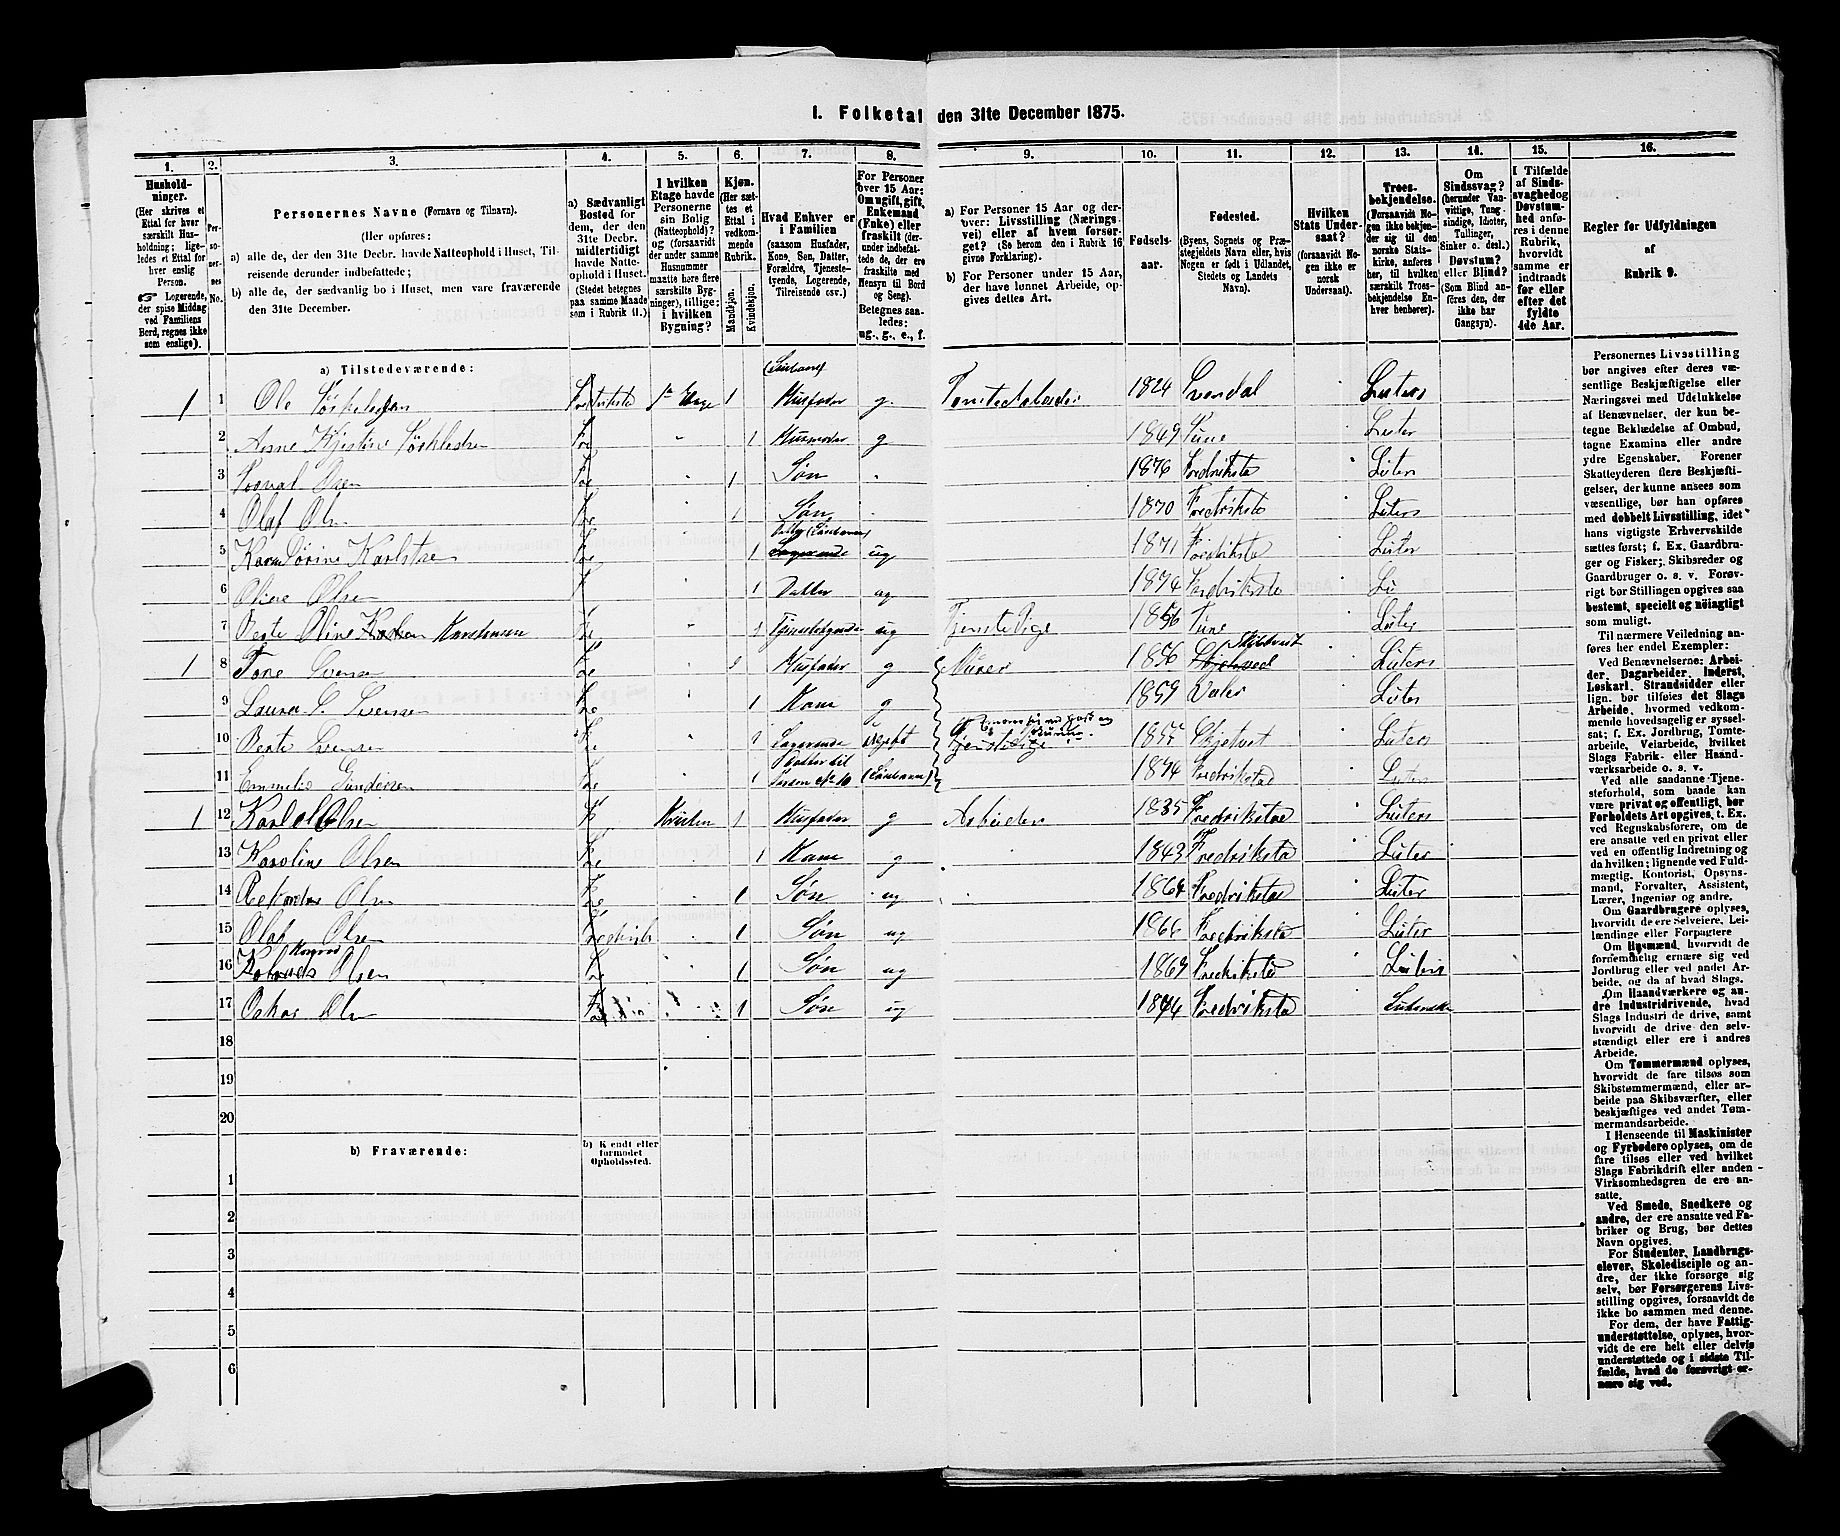 I. Folketal den 31te December 1875.
1. 2. 3. 4. 5. 6. 7. 8. 9. 10. 11. 12. 13. 14. 15. 16.
Husholdninger.
(Her skrives et
Ettal for hver
særskilt Husholdning;
ligeledes
et Ettal for
hver enslig
Person.
☞ Logerende,
der spise Middag
ved Familiens
Bord, regnes ikke
som enslige).
Personernes No.
Personernes Navne (Fornavn og Tilnavn).
(Her opføres:
a) alle de, der den 31te Decbr. havde Natteophold i Huset, Tilreisende
derunder indbefattede;
b) alle de, der sædvanlig bo i Huset, men vare fraværende
den 31te December.
a) Sædvanligt
Bosted for
dem, der den
31te Decbr.
midlertidigt
havde Natteophold
i Huset.
(Stedet betegnes
paa samme Maade
som i Rubrik 11.)
I hvilken
Etage havde
Personerne
sin Bolig
(Natteophold)?
og (forsaavidt
der under samme
Husnummer
maatte høre flere
særskilte Bygninger),
tillige:
i hvilken
Bygning?
Kjøn.
(Her sættes
et
Ettal i
vedkommende
Rubrik.
Mandkjøn.
Kvindekjøn.
Hvad Enhver er
i Familien
(saasom Husfader,
Kone, Søn, Datter,
Forældre, Tjenestetyende,
Logerende,
Tilreisende osv.)
For Personer
over 15 Aar:
Om ugift, gift,
Enkemand
(Enke) eller
fraskilt (derunder
indbefattede
de, der ere
fraskilte med
Hensyn til Bord
og Seng).
Betegnes saaledes:
ug., g., e., f.
a) For Personer 15 Aar og derover:
Livsstilling (Næringsvei)
eller af hvem forsørget?
(Se herom den i Rubrik 16
givne Forklaring).
b) For Personer under 15 Aar,
der have lønnet Arbeide, opgives
dettes Art.
Fødselsaar.
Fødested.
(Byens, Sognets og Præstegjeldets
Navn eller, hvis
Nogen er født i Udlandet,
Stedets og Landets
Navn).
Hvilken
Stats Undersaat?
(forsaavidt Nogen
ikke er
norsk
Undersaat).
Troesbekjendelse.
(Forsaavidt Nogen
ikke bekjender
sig til den
norske Statskirke,
anføres
her, til hvilken
særskilt Troesbekjendelse
Enhver
henhører).
Om
Sindssvag?
(herunder Vanvittige,
Tungsindige,
Idioter,
Tullinger,
Sinker o. desl.)
Døvstum?
eller Blind?
(Som Blind anføres
den, der
ikke har
Gangsyn).
I Tilfælde
af Sindssvaghed
og
Døvstumhed
anføres
i denne
Rubrik,
hvorvidt
samme er
indtraadt
før eller
efter det
fyldte
4de Aar.
Regler for Udfyldningen
af
Rubrik 9.
a) Tilstedeværende:
1 1 Ole 1 Husfader g. 1824 Luters
2 1 Husmoder g 1849 Tune Luter
3 Olsen 1 Søn 1876 Fredriksta Luters
4 Olaf Ols 1 Søn 1870 Fredriksta Luters
5 1 Logerende ug 1871 Fredriksta Luter
6 Oline Olsen 1 Datter ug 1874 Fredriksta Lu
7 Berte Oline Karstensen 1 ug Tjenste Pige 1856 Tune Luter
1 8 Svensen 1 Husfader g Murer 1856 Luters
9 Laura Svensen 1 Kone g 1859 Luter
10 Berte Svensen 1 Logerende ugift 1855 Skjebet Luters
11 Emmelie Gundersen 1 Datter til 1874 Fredrikstad Luters
1 12 Karl Olsen 1 Husfader g Arbeider 1835 Fredrikstad Luters
13 Karoline Olsen 1 Kone g 1843 Fredriksta Luter
14 Olsen 1 Søn ug 1864 Fredriksta Luter
15 Olaf Olsen 1 Søn ug 1866 Fredriksta Luter
16 Olsen 1 Søn ug 1869 Fredriksta Luters
17 Oskar Ols 1 Søn ug 1874 Fredriksta
18
19
20
b) Fraværende:
b) Kjendt eller
formodet
Opholdssted.
1
2
3
4
5
6
Personernes Livsstilling
bør angives efter deres væsentlige
Beskjæftigelse eller
Næringsvei med Udelukkelse
af Benævnelser, der kun betegne
Beklædelse af Ombud,
tagne Examina eller andre
ydre Egenskaber. Forener
Skatteyderen flere Beskjæftigelser,
der kunne ansees som
væsentlige, bør han opføres
med dobbelt Livsstilling, idet
hans vigtigste Erhvervskilde
sættes først; f. Ex. Gaardbruger
og Fisker; Skibsreder og
Gaardbruger o. s. v. Forøvrigt
bør Stillingen opgives saa
bestemt, specielt og nöiagtigt
som muligt.
Til nærmere Veiledning anføres
her endel Exempler:
Ved Benævnelserne: Arbeider,
Dagarbeider, Inderst,
Løskarl, Strandsidder eller
lign. bør tilføies det Slags
Arbeide, hvormed vedkommende
hovedsagelig er sysselsat;
f. Ex. Jordbrug, Tomtearbeide,
Veiarbeide, hvilket
Slags Fabrik- eller Haandværksarbeide
o. s. v.
Ved alle saadanne Tjenesteforhold,
som baade kan
være privat og offentligt, bør
Forholdets Art opgives, t. Ex.
ved Regnskabsførere, om de
ere ansatte ved en privat eller
ved en offentlig Indretning og
da hvilken; lignende ved Fuldmægtig,
Kontorist, Opsynsmand,
Forvalter, Assistent,
Lærer, Ingeniør og andre.
Om Gaardbrugere oplyses,
hvorvidt de ere Selveiere, Leilændinge
eller Forpagtere
Om Husmænd, hvorvidt de
fornemmelig ernære sig ved
Jordbrug eller ved andet Arbeide,
og da af hvad Slags.
Om Haandværkere og andre
Industridrivende, hvad
Slags Industri de drive, samt
hvorvidt de drive den selvstændigt
eller ere i andres
Arbeide.
Om Tømmermænd oplyses,
hvorvidt de fare tilsøs som
Skibstømmermænd, eller arbeide
paa Skibsværfter, eller
beskjæftiges ved andet Tømmermandsarbeide.
I Henseende til Maskinister
og Fyrbødere oplyses, om de
fare tilsøs eller ved hvilket
Slags Fabrikdrift eller anden
Virksomhedsgren de ere ansatte.
Ved Smede, Snedkere og
andre, der ere ansatte ved Fabriker
og Brug, bør dettes
Navn opgives.
For Studenter, Landbrugselever,
Skoledisciple og andre,
der ikke forsørge sig
selv, bør Forsørgerens Livsstilling
opgives, forsaavidt de
ikke bo sammen med denne.
For dem, der have Fattigunderstøttelse,
oplyses, hvorvidt
de ere helt eller delvis
understøttede og i sidste Tilfælde,
hvad de forøvrigt ernære
sig ved.